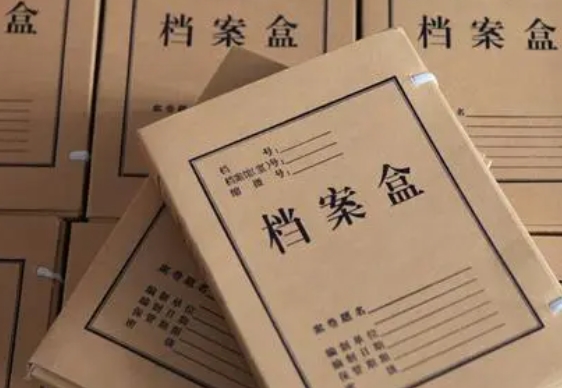 盒
档案盒
档案盒
案卷题名
案卷题名
档 号:
档案馆(室)号:
缩 微 号:
档案盒
案卷题名
编制单位
编制日期
保管期限
密 级
案卷题名
编制单位
编制日期
保管期限
密 级